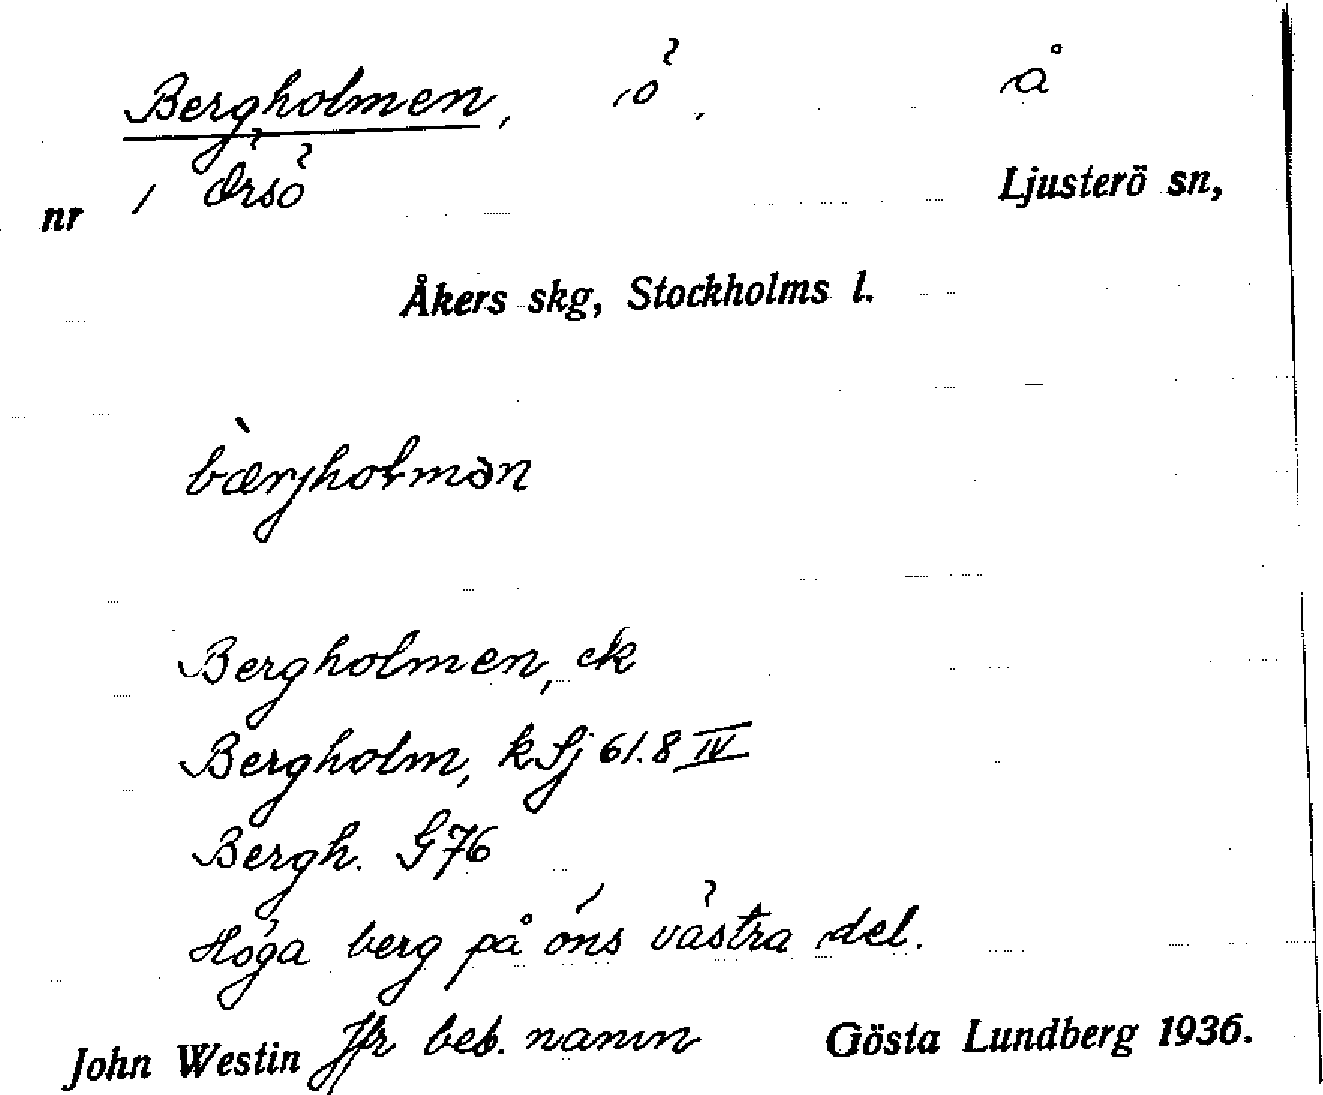 Bergholmen, ö, å
nr 1 Örsö Ljusterö sn,
Åkers skg, Stockholms l.
bærjholmən
Bergholmen, ek
Bergholm, kSj 61.8 IV
Bergh. G76
Höga berg på öns västra del.
John Westin Jfr beb. namn Gösta Lundberg 1936.